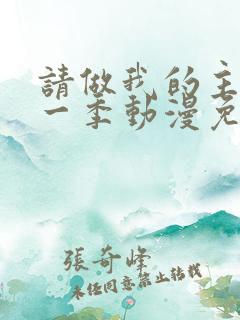 請做我的主
一季動漫免
張奇峰
未經同意禁止轉載